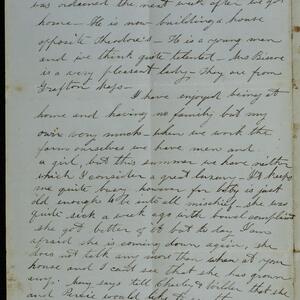 was ordained the next week after we got
home - He is now building a house
opposite Theodore's - He is a young man
and we think quite talented - Mrs Biscoe
is a very pleasant lady - They are from
Grafton Mass -
I have enjoyed being at
home and having no family but my
own very much - when we work the
farm ourselves we have men and
a girl, but this summer we have neither
which I consider a great luxury - It keeps
me quite busy however for is just
old enough to be into all mischief - she was
quite sick a week ago with bowel complaint
she got better of it but to day I am
afraid she is coming down again, she
does not talk any more than when at your
house and I cant see that she has grown
any. Mary says tell Charley & Wilder that she
and would like to see them